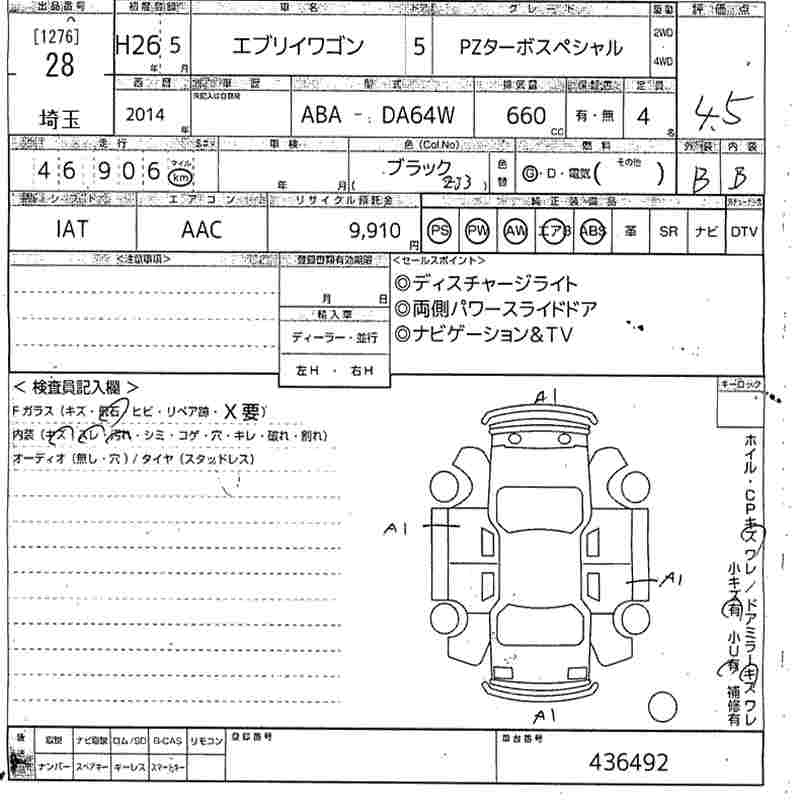 出品番号 初度登録 車名 ドア グレード 駆動 評価点
[1276] 28 H26年 5月 エブリイワゴン 5 PZターボスペシャル 2WD・4WD
西暦 車歴 型式 排気量 定員 4.5
埼玉 2014年 ABA - DA64W 660cc 有・無 4名
走行 車検 色(Col.No) 燃料 外装 内装
46906 マイル km 年 月( ブラック 2J3 ) 色替 G・D・電気( その他 ) B B
シフト エアコン リサイクル預託金 純正装備品
IAT AAC 9,910円 PS PW AW エアB ABS 革 SR ナビ DTV
<注意事項> 登録書類有効期限 <セールスポイント>
月 日 ◎ディスチャージライト
輸入車 ◎両側パワースライドドア
ディーラー・並行 ◎ナビゲーション&TV
左H・右H
<検査員記入欄> キーロック
Fガラス(キズ・飛石・ヒビ・リペア跡・X要)
内装(キズ・スレ・汚れ・シミ・コゲ・穴・キレ・破れ・割れ)
オーディオ(無し・穴)/タイヤ(スタッドレス)
A1
A1
A1
A1
ホイル・CPキズ ワレ/ドアミラーキズ ワレ
小キズ有 小U有 補修有
後送品 取説 ナビ取説 ロム/SD B-CAS リモコン 登録番号 車台番号
ナンバー スペアキー キーレス スマートキー 436492